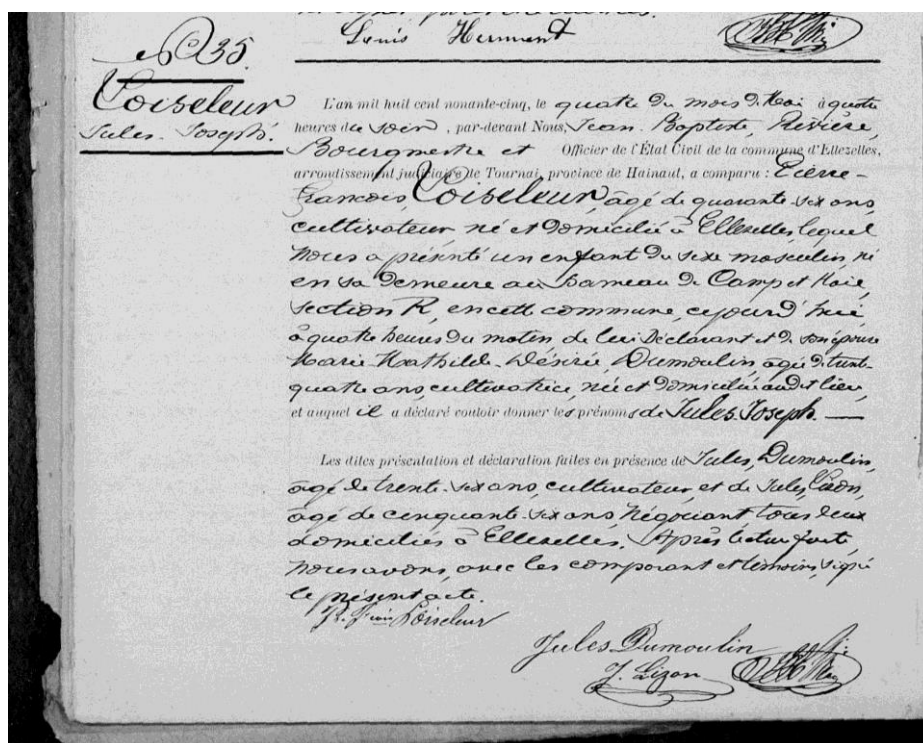 Louis Herment
No 35.
Loiseleur
Jules Joseph.
L'an mil huit cent nonante-cinq, le quatre du mois de Mai à quatre
heures du soir, par-devant Nous, Jean Baptiste, Rivière,
Bourgmestre et Officier de l'État Civil de la commune d'Ellezelles,
arrondissement judiciaire de Tournai, province de Hainaut, a comparu : Pierre-
François, Loiseleur, âgé de quarante-six ans,
cultivateur, né et domicilié à Ellezelles, lequel
Nous a présenté un enfant du sexe masculin, né
en sa demeure au hameau de Camp et Haie,
section R, en cette commune, cejourd'hui
à quatre heures du matin, de lui Déclarant et de son épouse
Marie-Mathilde-Désirée, Dumoulin, âgée de trente-
quatre ans, cultivatrice, née et domiciliée audit lieu,
et auquel il a déclaré vouloir donner les prénoms de Jules Joseph. —
Les dites présentation et déclaration faites en présence de Jules, Dumoulin,
âgé de trente-six ans, cultivateur, et de Jules,
âgé de cinquante-six ans, Négociant, tous deux
domiciliés à Ellezelles. Après lecture faite,
Nous avons, avec les comparant et témoins, signé
le présent acte.
Loiseleur
Jules Dumoulin